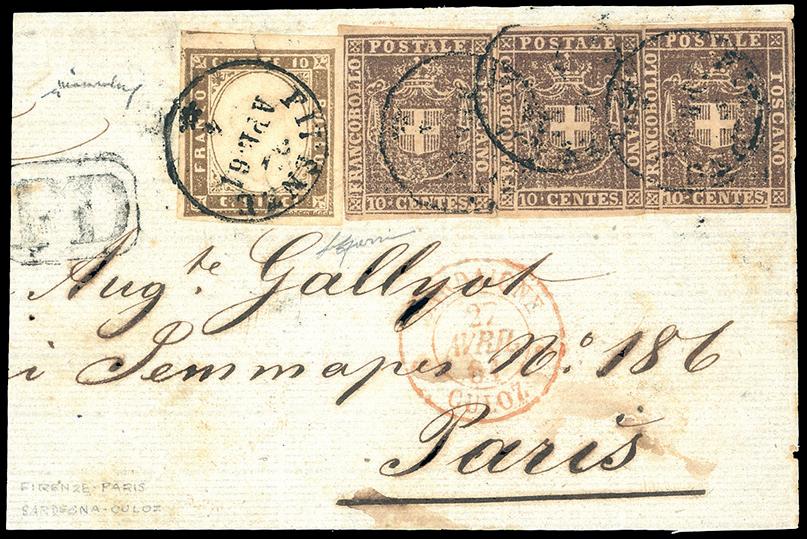 FRANCO
C. DIECI 10
FIRENZE
APR 61
FRANCOBOLLO
POSTALE
10 CENTES
POSTALE
10 CENTES
FRANCOBOLLO
POSTALE
TOSCANO
10 CENTES
PD
Augte Gallyot
i Jemmapes No. 186
Paris
SARDAIGNE
27
AVRIL
CULOZ
FIRENZE-PARIS
SARDEGNA-CULOZ